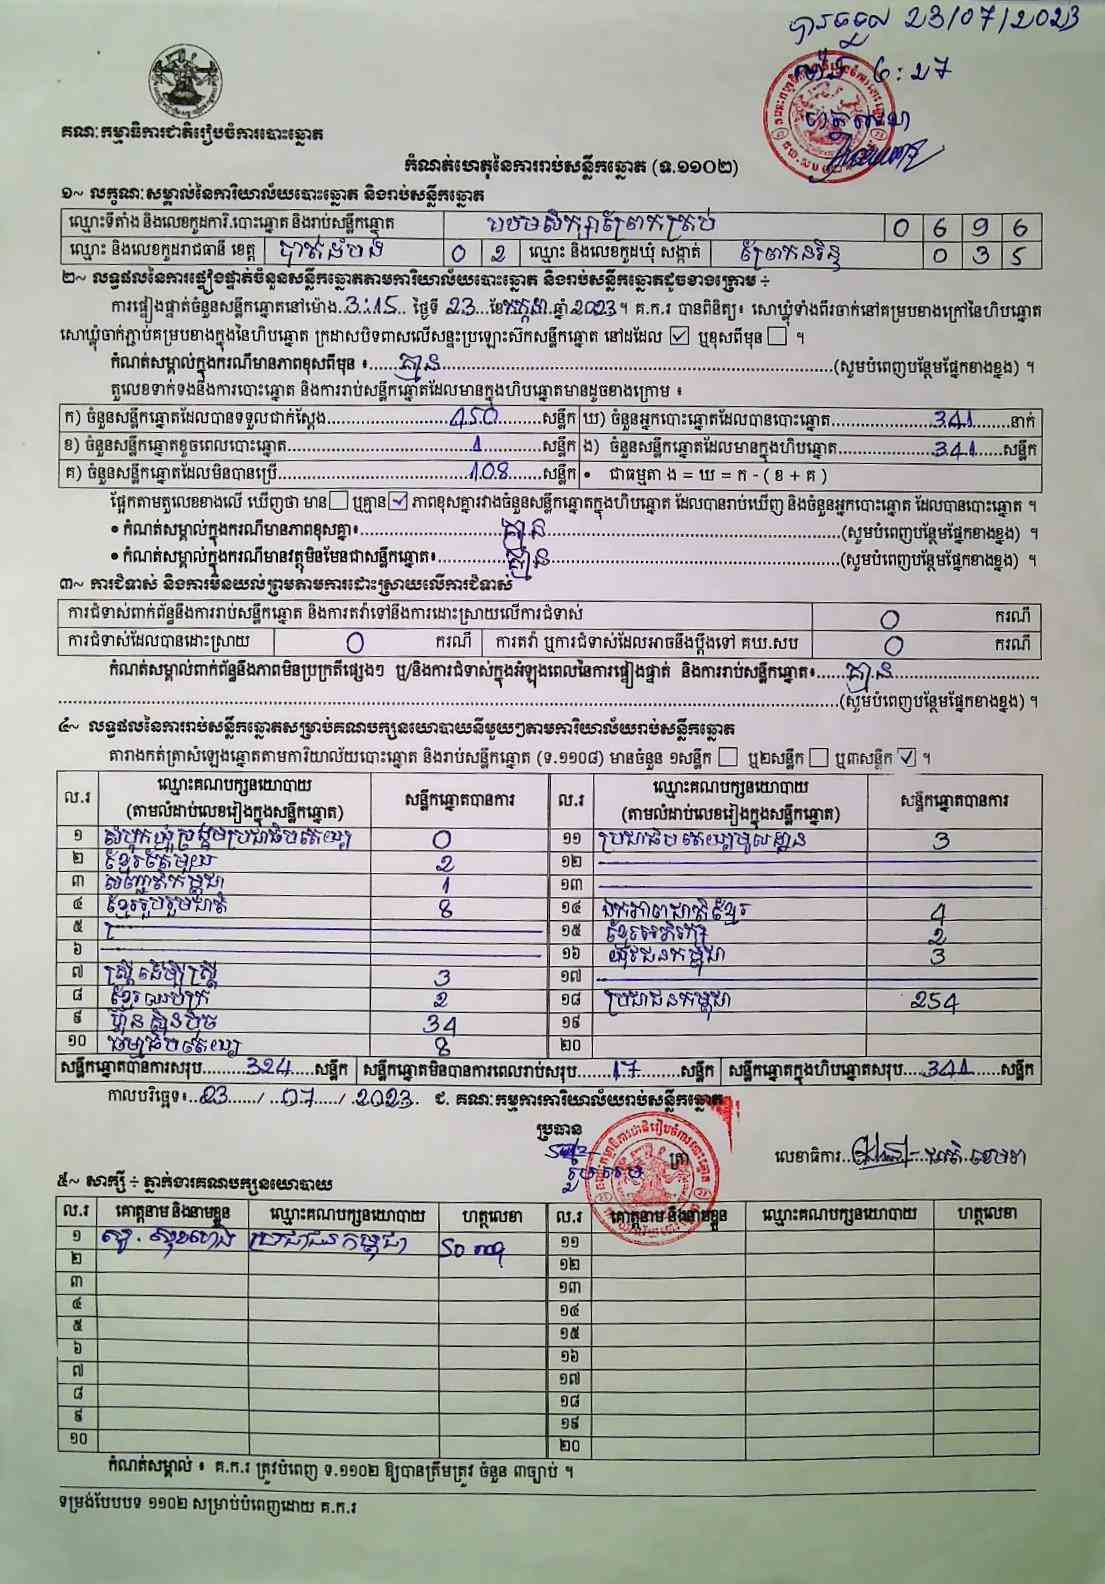 បានទទួល 23/07/2023
ម៉ោង 6:27
គណៈកម្មាធិការជាតិរៀបចំការបោះឆ្នោត
កំណត់ហេតុនៃការរាប់សន្លឹកឆ្នោត (ទ.១១០២)
១~ លក្ខណៈសម្គាល់នៃការិយាល័យបោះឆ្នោត និងរាប់សន្លឹកឆ្នោត
ឈ្មោះទីតាំង និងលេខកូដការិ.បោះឆ្នោត និងរាប់សន្លឹកឆ្នោត បឋមសិក្សាព្រែកត្រប់ 0 6 9 6
ឈ្មោះ និងលេខកូដរាជធានី ខេត្ត បាត់ដំបង 0 2 ឈ្មោះ និងលេខកូដឃុំ សង្កាត់ ព្រែកនរិន្ទ 0 3 5
២~ លទ្ធផលនៃការផ្ទៀងផ្ទាត់ចំនួនសន្លឹកឆ្នោតតាមការិយាល័យបោះឆ្នោត និងរាប់សន្លឹកឆ្នោតដូចខាងក្រោម ÷
ការផ្ទៀងផ្ទាត់ចំនួនសន្លឹកឆ្នោតនៅម៉ោង 3:15 ថ្ងៃទី 23 ខែ កក្កដា ឆ្នាំ 2023 ។ គ.ក.រ បានពិនិត្យ៖ សោឃ្លុំទាំងពីរចាក់នៅគម្របខាងក្រៅនៃហិបឆ្នោត
សោឃ្លុំចាក់ភ្ជាប់គម្របខាងក្នុងនៃហិបឆ្នោត ក្រដាសបិទពាសលើសន្ទះប្រឡោះស៊កសន្លឹកឆ្នោត នៅដដែល ☑ ឬខុសពីមុន ☐ ។
កំណត់សម្គាល់ក្នុងករណីមានភាពខុសពីមុន ៖ គ្មាន (សូមបំពេញបន្ថែមផ្នែកខាងខ្នង) ។
តួលេខទាក់ទងនឹងការបោះឆ្នោត និងការរាប់សន្លឹកឆ្នោតដែលមានក្នុងហិបឆ្នោតមានដូចខាងក្រោម ៖
ក) ចំនួនសន្លឹកឆ្នោតដែលបានទទួលជាក់ស្តែង 450 សន្លឹក ឃ) ចំនួនអ្នកបោះឆ្នោតដែលបានបោះឆ្នោត 341 នាក់
ខ) ចំនួនសន្លឹកឆ្នោតខូចពេលបោះឆ្នោត 1 សន្លឹក ង) ចំនួនសន្លឹកឆ្នោតដែលមានក្នុងហិបឆ្នោត 341 សន្លឹក
គ) ចំនួនសន្លឹកឆ្នោតដែលមិនបានប្រើ 108 សន្លឹក • ជាធម្មតា ង = ឃ = ក - ( ខ + គ )
ផ្អែកតាមតួលេខខាងលើ ឃើញថា មាន ☐ ឬគ្មាន ☑ ភាពខុសគ្នារវាងចំនួនសន្លឹកឆ្នោតក្នុងហិបឆ្នោត ដែលបានរាប់ឃើញ និងចំនួនអ្នកបោះឆ្នោត ដែលបានបោះឆ្នោត ។
• កំណត់សម្គាល់ក្នុងករណីមានភាពខុសគ្នា៖ គ្មាន (សូមបំពេញបន្ថែមផ្នែកខាងខ្នង) ។
• កំណត់សម្គាល់ក្នុងករណីមានវត្ថុមិនមែនជាសន្លឹកឆ្នោត៖ គ្មាន (សូមបំពេញបន្ថែមផ្នែកខាងខ្នង) ។
៣~ ការជំទាស់ និងការមិនយល់ព្រមតាមការដោះស្រាយលើការជំទាស់
ការជំទាស់ពាក់ព័ន្ធនឹងការរាប់សន្លឹកឆ្នោត និងការតវ៉ាទៅនឹងការដោះស្រាយលើការជំទាស់ 0 ករណី
ការជំទាស់ដែលបានដោះស្រាយ 0 ករណី ការតវ៉ា ឬការជំទាស់ដែលអាចនឹងប្តឹងទៅ គឃ.សប 0 ករណី
កំណត់សម្គាល់ពាក់ព័ន្ធនឹងភាពមិនប្រក្រតីផ្សេងៗ ឬ/និងការជំទាស់ក្នុងអំឡុងពេលនៃការផ្ទៀងផ្ទាត់ និងការរាប់សន្លឹកឆ្នោត៖ គ្មាន
(សូមបំពេញបន្ថែមផ្នែកខាងខ្នង) ។
៤~ លទ្ធផលនៃការរាប់សន្លឹកឆ្នោតសម្រាប់គណបក្សនយោបាយនីមួយៗតាមការិយាល័យរាប់សន្លឹកឆ្នោត
តារាងកត់ត្រាសំឡេងឆ្នោតតាមការិយាល័យបោះឆ្នោត និងរាប់សន្លឹកឆ្នោត (ទ.១១០៨) មានចំនួន ១សន្លឹក ☐ ឬ២សន្លឹក ☐ ឬ៣សន្លឹក ☑ ។
ល.រ ឈ្មោះគណបក្សនយោបាយ (តាមលំដាប់លេខរៀងក្នុងសន្លឹកឆ្នោត) សន្លឹកឆ្នោតបានការ ល.រ ឈ្មោះគណបក្សនយោបាយ (តាមលំដាប់លេខរៀងក្នុងសន្លឹកឆ្នោត) សន្លឹកឆ្នោតបានការ
១ សំបុកឃ្មុំសង្គមប្រជាធិបតេយ្យ 0 ១១ ប្រជាធិបតេយ្យមូលដ្ឋាន 3
២ ខ្មែរតែមួយ 2 ១២
៣ សញ្ជាតិកម្ពុជា 1 ១៣
៤ ខ្មែររួបរួមជាតិ 8 ១៤ ឯកភាពជាតិខ្មែរ 4
៥ ១៥ ខ្មែរអភិរក្ស 2
៦ ១៦ យុវជនកម្ពុជា 3
៧ ស្ត្រីដើម្បីស្ត្រី 3 ១៧
៨ ខ្មែរឈប់ក្រ 2 ១៨ ប្រជាជនកម្ពុជា 254
៩ ហ៊្វុនស៊ិនប៉ិច 34 ១៩
១០ ធម្មាធិបតេយ្យ 8 ២០
សន្លឹកឆ្នោតបានការសរុប 324 សន្លឹក សន្លឹកឆ្នោតមិនបានការពេលរាប់សរុប 17 សន្លឹក សន្លឹកឆ្នោតក្នុងហិបឆ្នោតសរុប 341 សន្លឹក
កាលបរិច្ឆេទ៖ 23 / 07 / 2023 ជ. គណៈកម្មការការិយាល័យរាប់សន្លឹកឆ្នោត
ប្រធាន ត្រា លេខាធិការ
៥~ សាក្សី ÷ ភ្នាក់ងារគណបក្សនយោបាយ
ល.រ គោត្តនាម និងនាមខ្លួន ឈ្មោះគណបក្សនយោបាយ ហត្ថលេខា ល.រ គោត្តនាម និងនាមខ្លួន ឈ្មោះគណបក្សនយោបាយ ហត្ថលេខា
១ ប្រជាជនកម្ពុជា ១១
២ ១២
៣ ១៣
៤ ១៤
៥ ១៥
៦ ១៦
៧ ១៧
៨ ១៨
៩ ១៩
១០ ២០
កំណត់សម្គាល់ ៖ គ.ក.រ ត្រូវបំពេញ ទ.១១០២ ឱ្យបានត្រឹមត្រូវ ចំនួន ៣ច្បាប់ ។
ទម្រង់បែបបទ ១១០២ សម្រាប់បំពេញដោយ គ.ក.រ